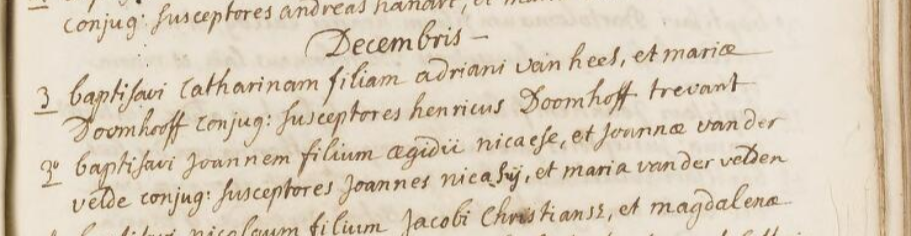 conjug: susceptores andreas
Decembris -
3 baptisavi Catharinam filiam adriani van hees, et mariæ
Doomhooff conjug: susceptores henricus Doomhoff trevant
3º baptisavi Joannem filium ægidii nicaese, et Joannæ van der
velde conjug: susceptores Joannes nicasij, et maria van der velden
baptisavi nicolaum filium Jacobi Christiansz, et magdalenæ